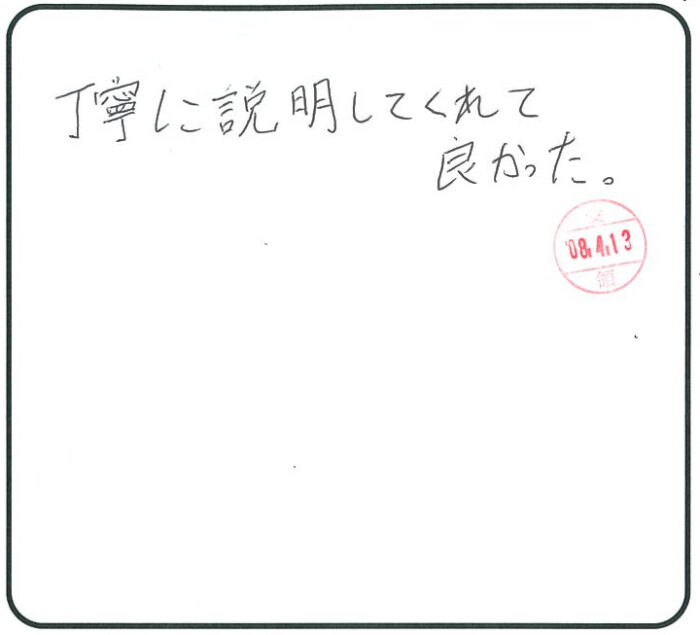 丁寧に説明してくれて
良かった。
'08.4.13
領